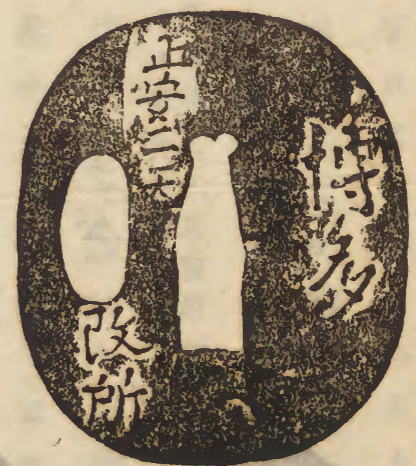 博多
正安二天
改所